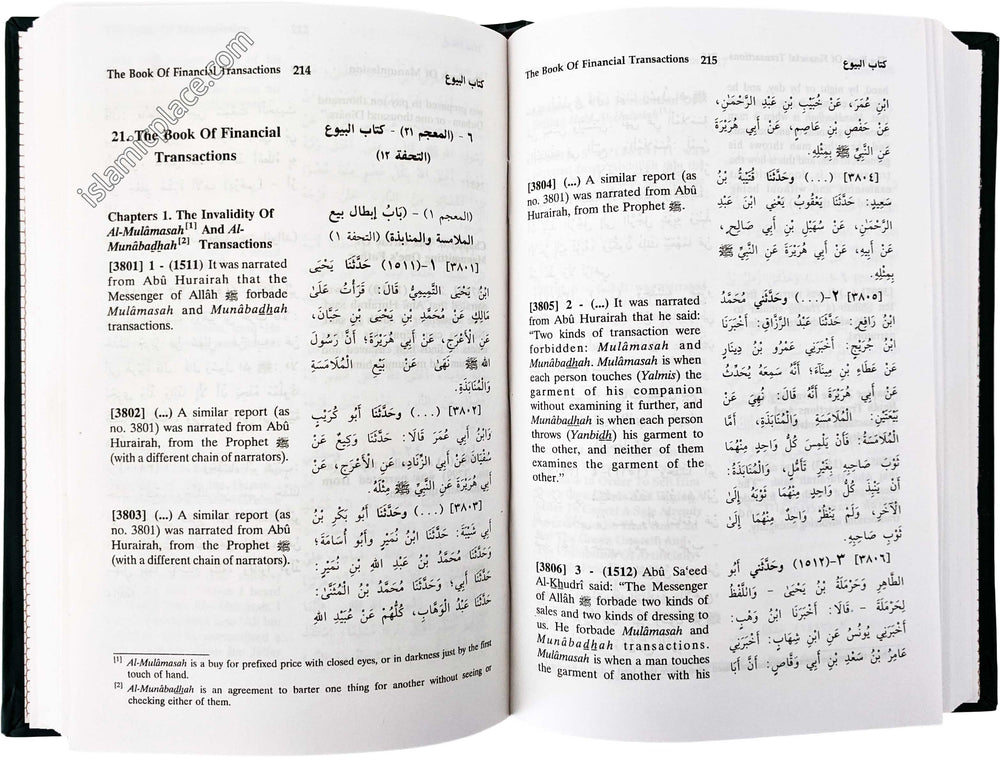 islamicplace.com
The Book Of Financial Transactions 214
كتاب البيوع
21. The Book Of Financial
Transactions
٦ - (المعجم ٢١) - كتاب البيوع
(التحفة ١٢)
Chapters 1. The Invalidity Of
Al-Mulâmasah[1] And Al-
Munâbadhah[2] Transactions
(المعجم ١) - (بَابُ إبطال بيع
الملامسة والمنابذة) (التحفة ١)
[3801] 1 - (1511) It was narrated
from Abû Hurairah that the
Messenger of Allâh ﷺ forbade
Mulâmasah and Munâbadhah
transactions.
[٣٨٠١] ١-(١٥١١) حَدَّثَنَا يَحْيَى
ابْنُ يَحْيَى التَّمِيمِيُّ قَالَ: قَرَأْتُ عَلَىٰ
مَالِكٍ عَنْ مُحَمَّدِ بْنِ يَحْيَى بْنِ حَبَّانَ،
عَنِ الْأَعْرَجِ، عَنْ أَبِي هُرَيْرَةَ؛ أَنَّ رَسُولَ
اللهِ ﷺ نَهَىٰ عَنْ بَيْعِ الْمُلَامَسَةِ
وَالْمُنَابَذَةِ.
[3802] (...) A similar report (as
no. 3801) was narrated from Abû
Hurairah, from the Prophet ﷺ
(with a different chain of narrators).
[٣٨٠٢] (. . .) وحَدَّثَنَا أَبُو كُرَيْبٍ
وَابْنُ أَبِي عُمَرَ قَالَا: حَدَّثَنَا وَكِيعٌ عَنْ
سُفْيَانَ عَنْ أَبِي الزِّنَادِ، عَنِ الْأَعْرَجِ، عَنْ
أَبِي هُرَيْرَةَ عَنِ النَّبِيِّ ﷺ مِثْلَهُ.
[3803] (...) A similar report (as
no. 3801) was narrated from Abû
Hurairah, from the Prophet ﷺ
(with a different chain of narrators).
[٣٨٠٣] (. . .) وحَدَّثَنَا أَبُو بَكْرِ بْنُ
أَبِي شَيْبَةَ: حَدَّثَنَا ابْنُ نُمَيْرٍ وَأَبُو أُسَامَةَ؛
وَحَدَّثَنَا مُحَمَّدُ بْنُ عَبْدِ اللهِ بْنِ نُمَيْرٍ:
حَدَّثَنَا أَبِي؛ وَحَدَّثَنَا مُحَمَّدُ بْنُ الْمُثَنَّىٰ:
حَدَّثَنَا عَبْدُ الْوَهَّابِ، كُلُّهُمْ عَنْ عُبَيْدِ اللهِ
[1] Al-Mulâmasah is a buy for prefixed price with closed eyes, or in darkness just by the first
touch of hand.
[2] Al-Munâbadhah is an agreement to barter one thing for another without seeing or
checking either of them.
The Book Of Financial Transactions 215
كتاب البيوع
ابْنِ عُمَرَ، عَنْ خُبَيْبِ بْنِ عَبْدِ الرَّحْمٰنِ،
عَنْ حَفْصِ بْنِ عَاصِمٍ، عَنْ أَبِي هُرَيْرَةَ
عَنِ النَّبِيِّ ﷺ بِمِثْلِهِ.
[3804] (...) A similar report (as
no. 3801) was narrated from Abû
Hurairah, from the Prophet ﷺ.
[٣٨٠٤] (. . .) وحَدَّثَنَا قُتَيْبَةُ بْنُ
سَعِيدٍ: حَدَّثَنَا يَعْقُوبُ يَعْنِي ابْنَ عَبْدِ
الرَّحْمٰنِ، عَنْ سُهَيْلِ بْنِ أَبِي صَالِحٍ،
عَنْ أَبِيهِ، عَنْ أَبِي هُرَيْرَةَ عَنِ النَّبِيِّ ﷺ
بِمِثْلِهِ.
[3805] 2 - (...) It was narrated
from Abû Hurairah that he said:
“Two kinds of transaction were
forbidden: Mulâmasah and
Munâbadhah. Mulâmasah is when
each person touches (Yalmis) the
garment of his companion
without examining it further, and
Munâbadhah is when each person
throws (Yanbidh) his garment to
the other, and neither of them
examines the garment of the
other.”
[٣٨٠٥] ٢-(. . .) وحَدَّثَنِي مُحَمَّدُ
ابْنُ رَافِعٍ: حَدَّثَنَا عَبْدُ الرَّزَّاقِ: أَخْبَرَنَا
ابْنُ جُرَيْجٍ: أَخْبَرَنِي عَمْرُو بْنُ دِينَارٍ
عَنْ عَطَاءِ بْنِ مِينَاءَ؛ أَنَّهُ سَمِعَهُ يُحَدِّثُ
عَنْ أَبِي هُرَيْرَةَ أَنَّهُ قَالَ: نُهِيَ عَنْ
بَيْعَتَيْنِ: الْمُلَامَسَةِ وَالْمُنَابَذَةِ، أَمَّا
الْمُلَامَسَةُ: فَأَنْ يَلْمِسَ كُلُّ وَاحِدٍ مِنْهُمَا
ثَوْبَ صَاحِبِهِ بِغَيْرِ تَأَمُّلٍ، وَالْمُنَابَذَةُ:
أَنْ يَنْبِذَ كُلُّ وَاحِدٍ مِنْهُمَا ثَوْبَهُ إِلَى
الْآخَرِ، وَلَمْ يَنْظُرْ وَاحِدٌ مِنْهُمَا إِلَى
ثَوْبِ صَاحِبِهِ.
[3806] 3 - (1512) Abû Sa‘eed
Al-Khudrî said: “The Messenger
of Allâh ﷺ forbade two kinds of
sales and two kinds of dressing to
us. He forbade Mulâmasah and
Munâbadhah transactions.
Mulâmasah is when a man touches
the garment of another with his
[٣٨٠٦] ٣-(١٥١٢) وحَدَّثَنِي أَبُو
الطَّاهِرِ وَحَرْمَلَةُ بْنُ يَحْيَىٰ - وَاللَّفْظُ
لِحَرْمَلَةَ - قَالَا: أَخْبَرَنَا ابْنُ وَهْبٍ:
أَخْبَرَنِي يُونُسُ عَنِ ابْنِ شِهَابٍ: أَخْبَرَنِي
عَامِرُ بْنُ سَعْدِ بْنِ أَبِي وَقَّاصٍ: أَنَّ أَبَا